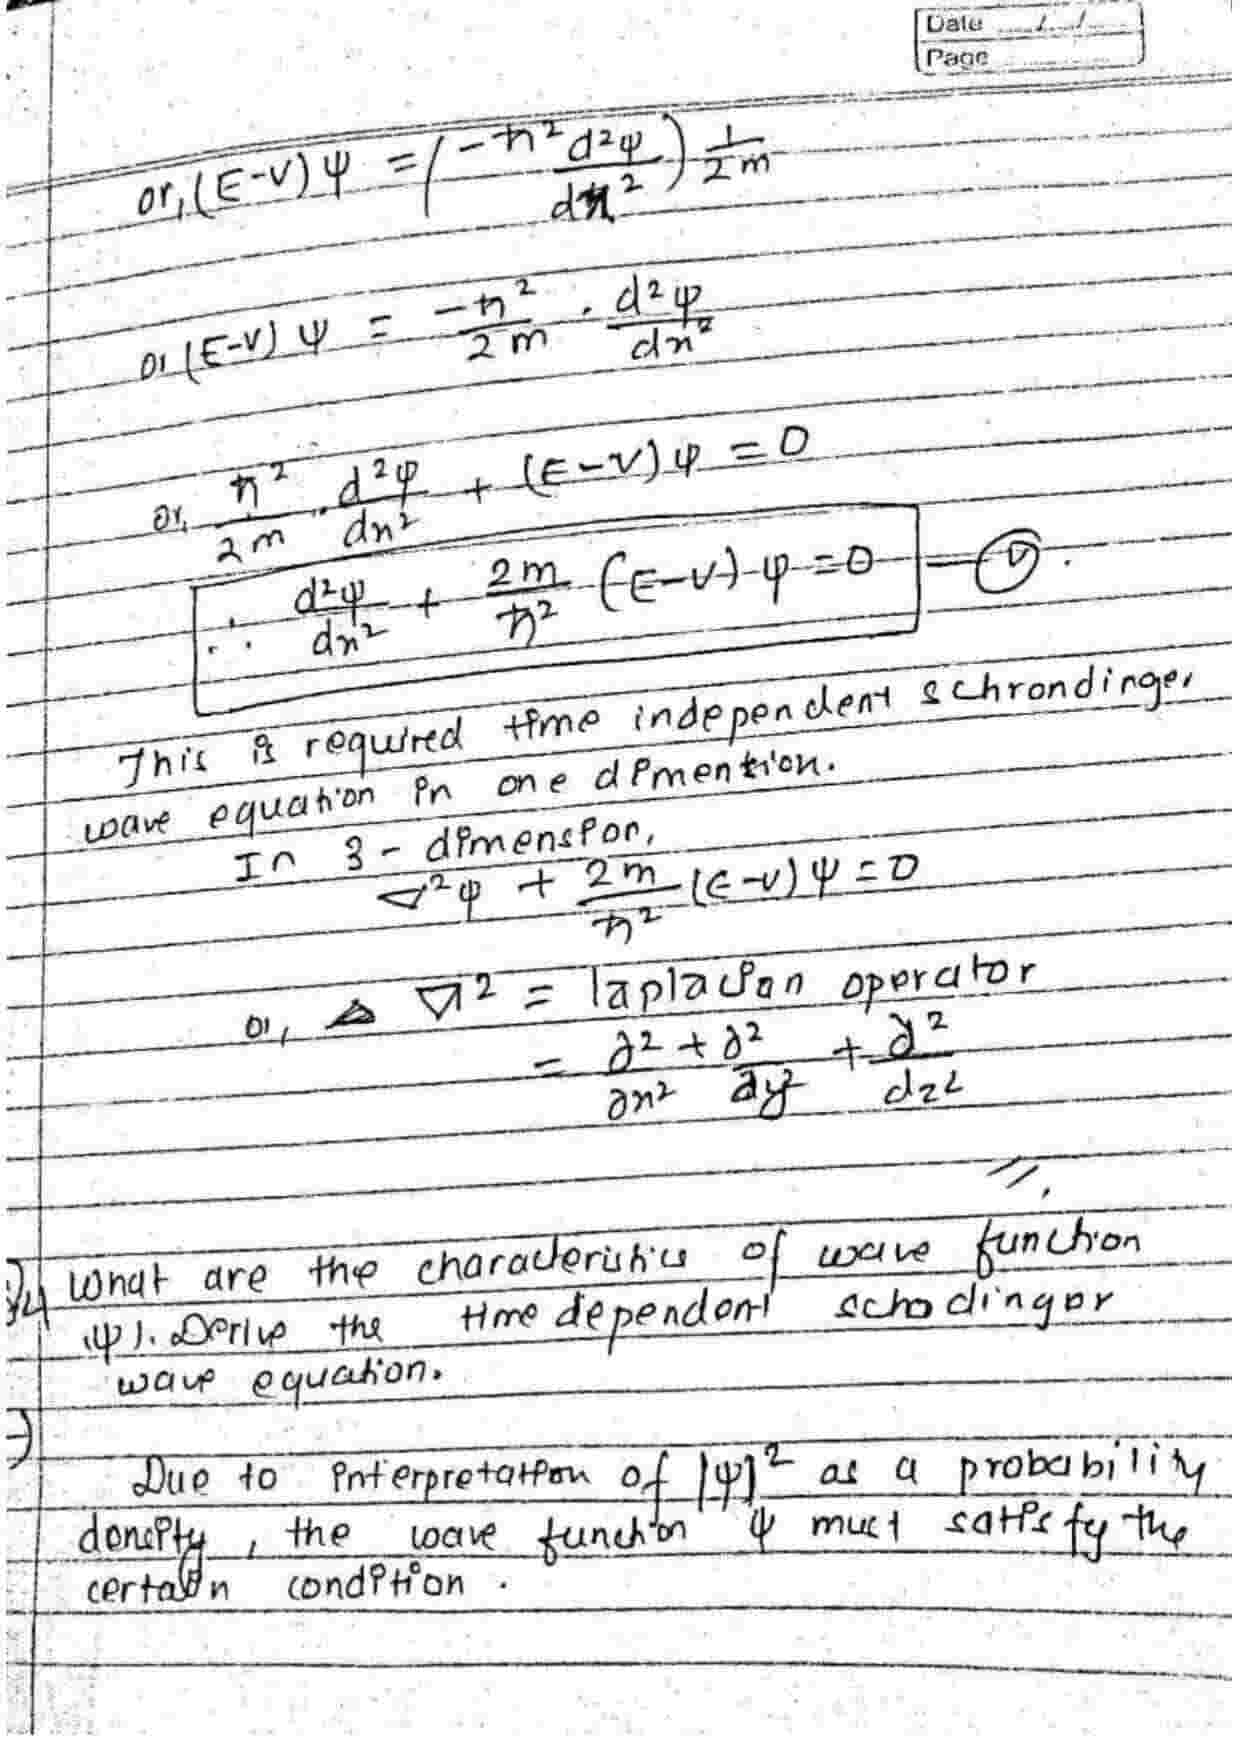 Date ...../...../.....
Page .....................
or, (E-V) ψ = (-ħ² d²ψ/dx²) 1/2m
or (E-V) ψ = -ħ²/2m . d²ψ/dx²
or, ħ²/2m . d²ψ/dx² + (E-V) ψ = 0
∴ d²ψ/dx² + 2m/ħ² (E-V) ψ = 0 — (v).
This is required time independent schrondinger
wave equation in one dimention.
In 3 - dimension,
∇²ψ + 2m/ħ² (E-V) ψ = 0
or, ∇² = laplacian operator
= ∂²/∂x² + ∂²/∂y² + ∂²/dz²
What are the characteristics of wave function
(ψ). Derive the time dependent schodinger
wave equation.
Due to interpretation of |ψ|² as a probability
density, the wave function ψ must satisfy the
certain condition.